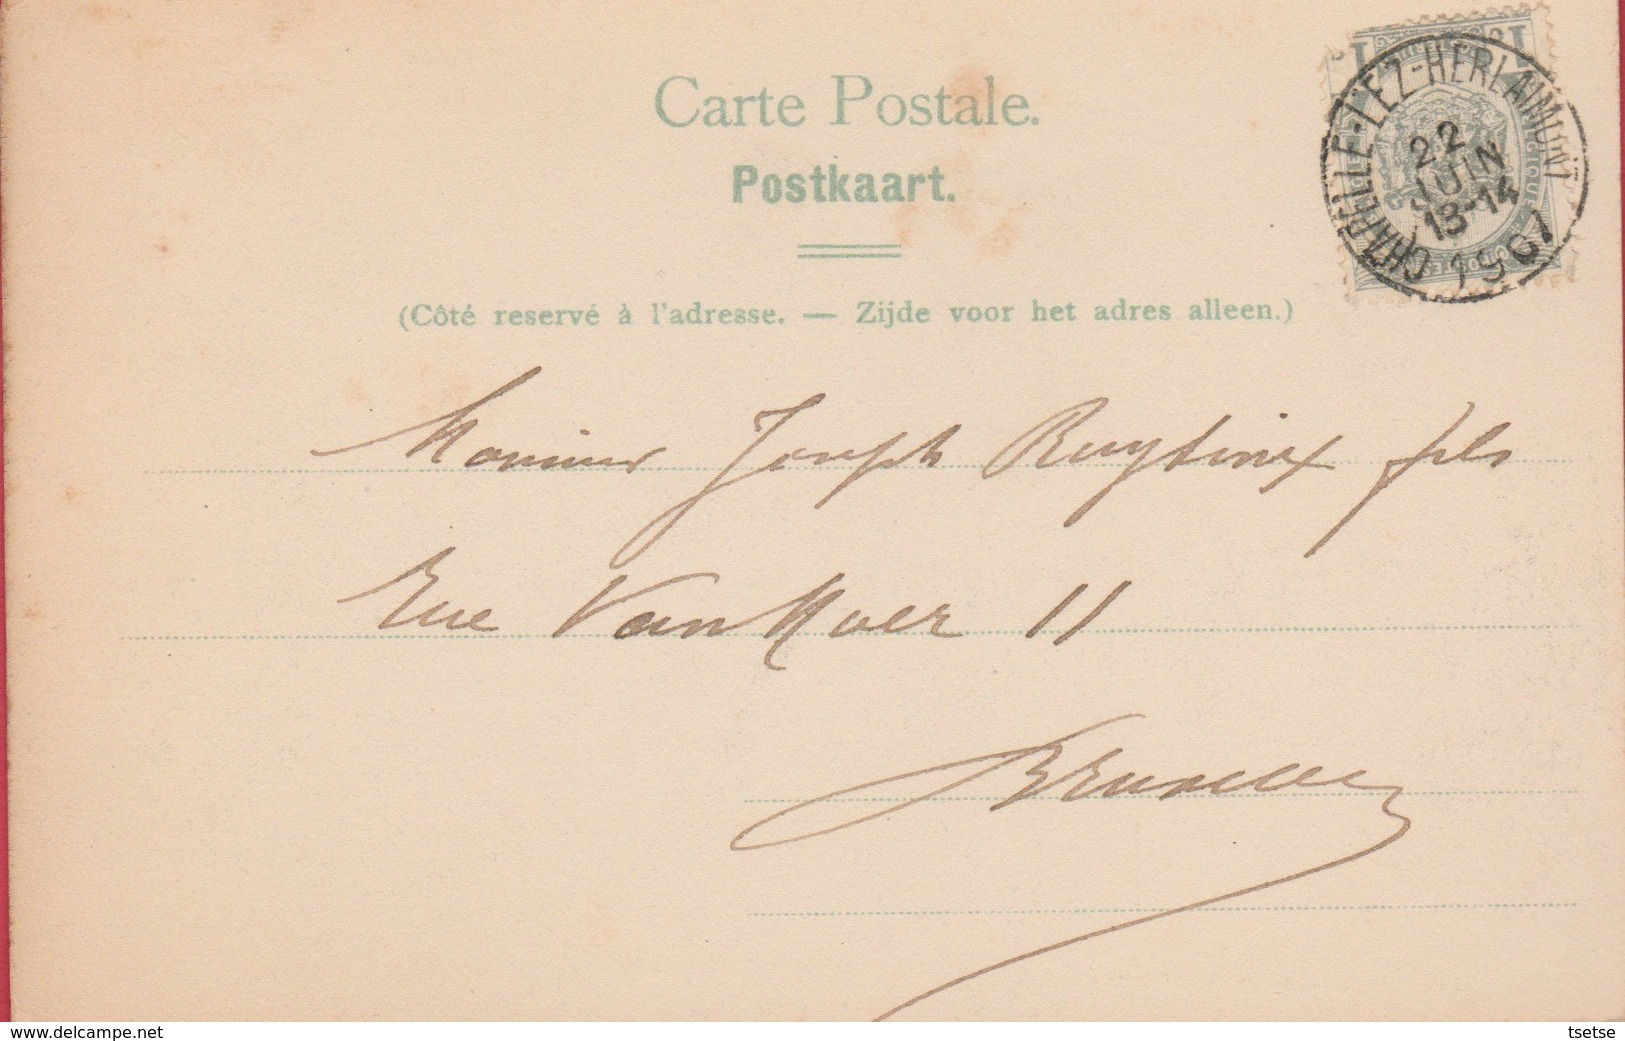 Carte Postale.
Postkaart.
(Côté reservé à l'adresse. — Zijde voor het adres alleen.)
CHAPELLE-LEZ-HERLAIMONT
22
JUIN
13-14
1907
Monsieur Joseph Ruytinx fils
Rue Van Moer 11
Bruxelles
www.delcampe.net
tsetse